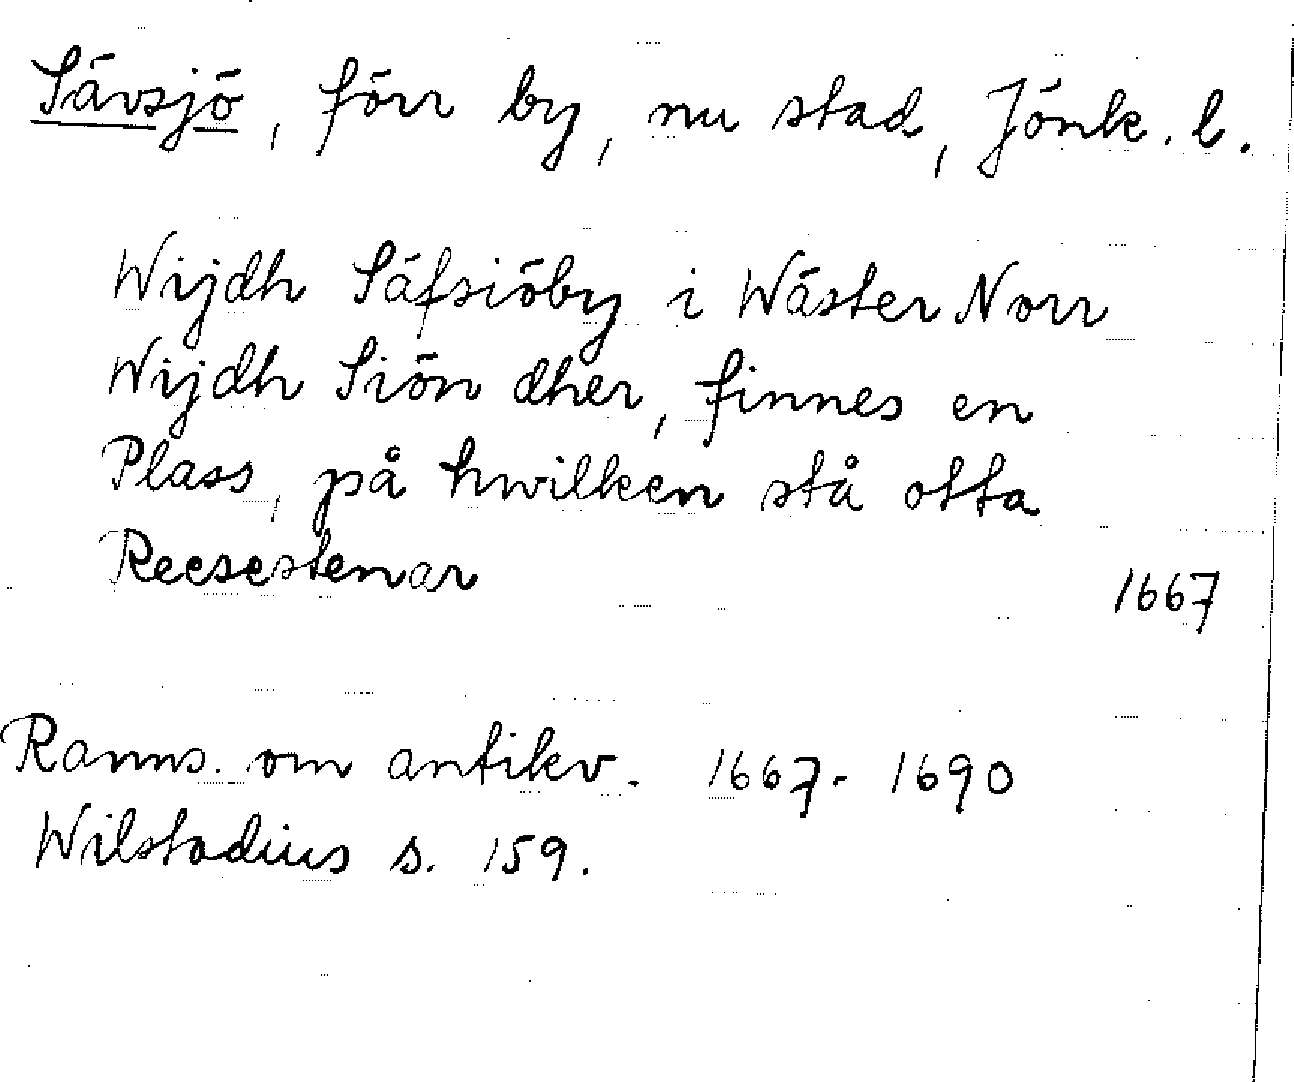 Sävsjö, förr by, nu stad, Jönk. l.
Wijdh Säfsiöby i Wäster Norr
Wijdh Siön dher, finnes en
Plass, på hwilken stå otta
Reesestenar
1667
Ranns. om antikv. 1667-1690
Wilstadius s. 159.